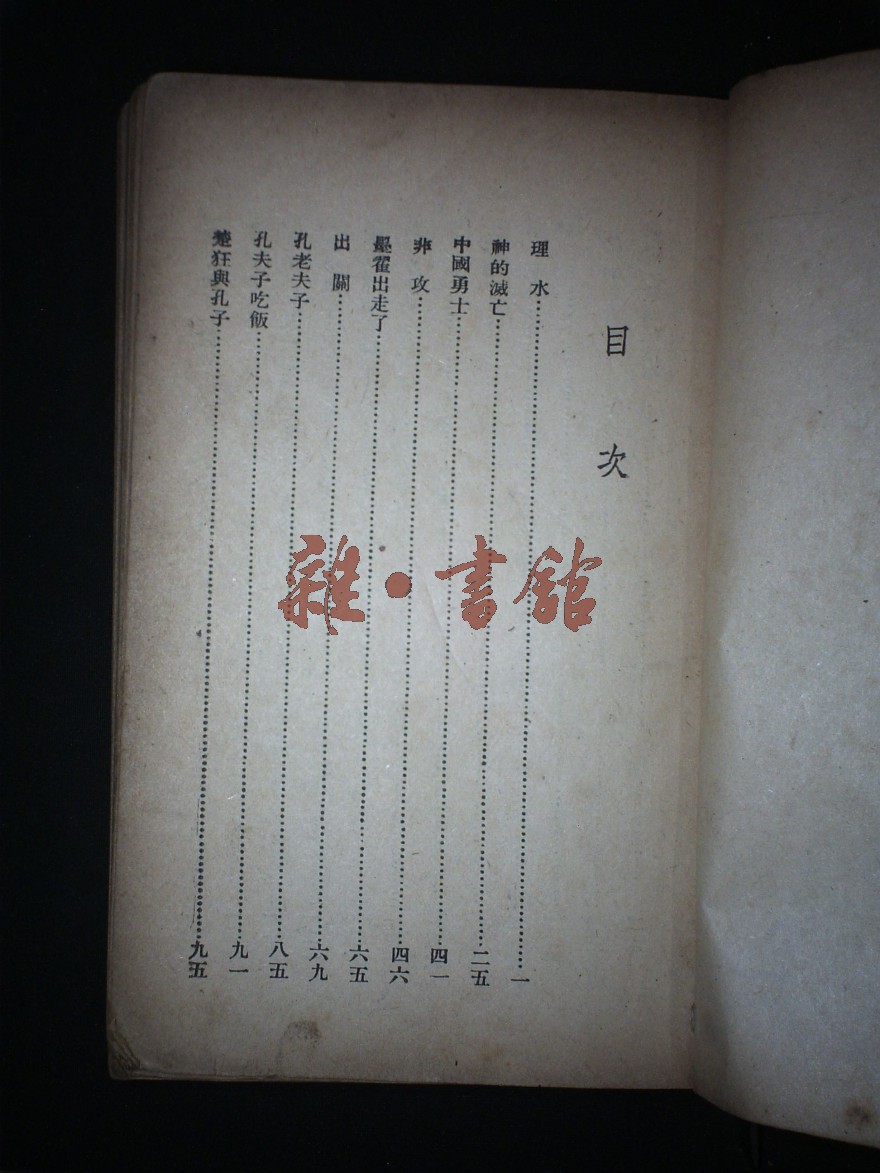 目次
理水……一
神的滅亡……二五
中國勇士……四一
非攻……四六
墨翟出走了……六五
出關……六九
孔老夫子……八五
孔夫子吃飯……九一
楚狂與孔子……九五
雜·書館